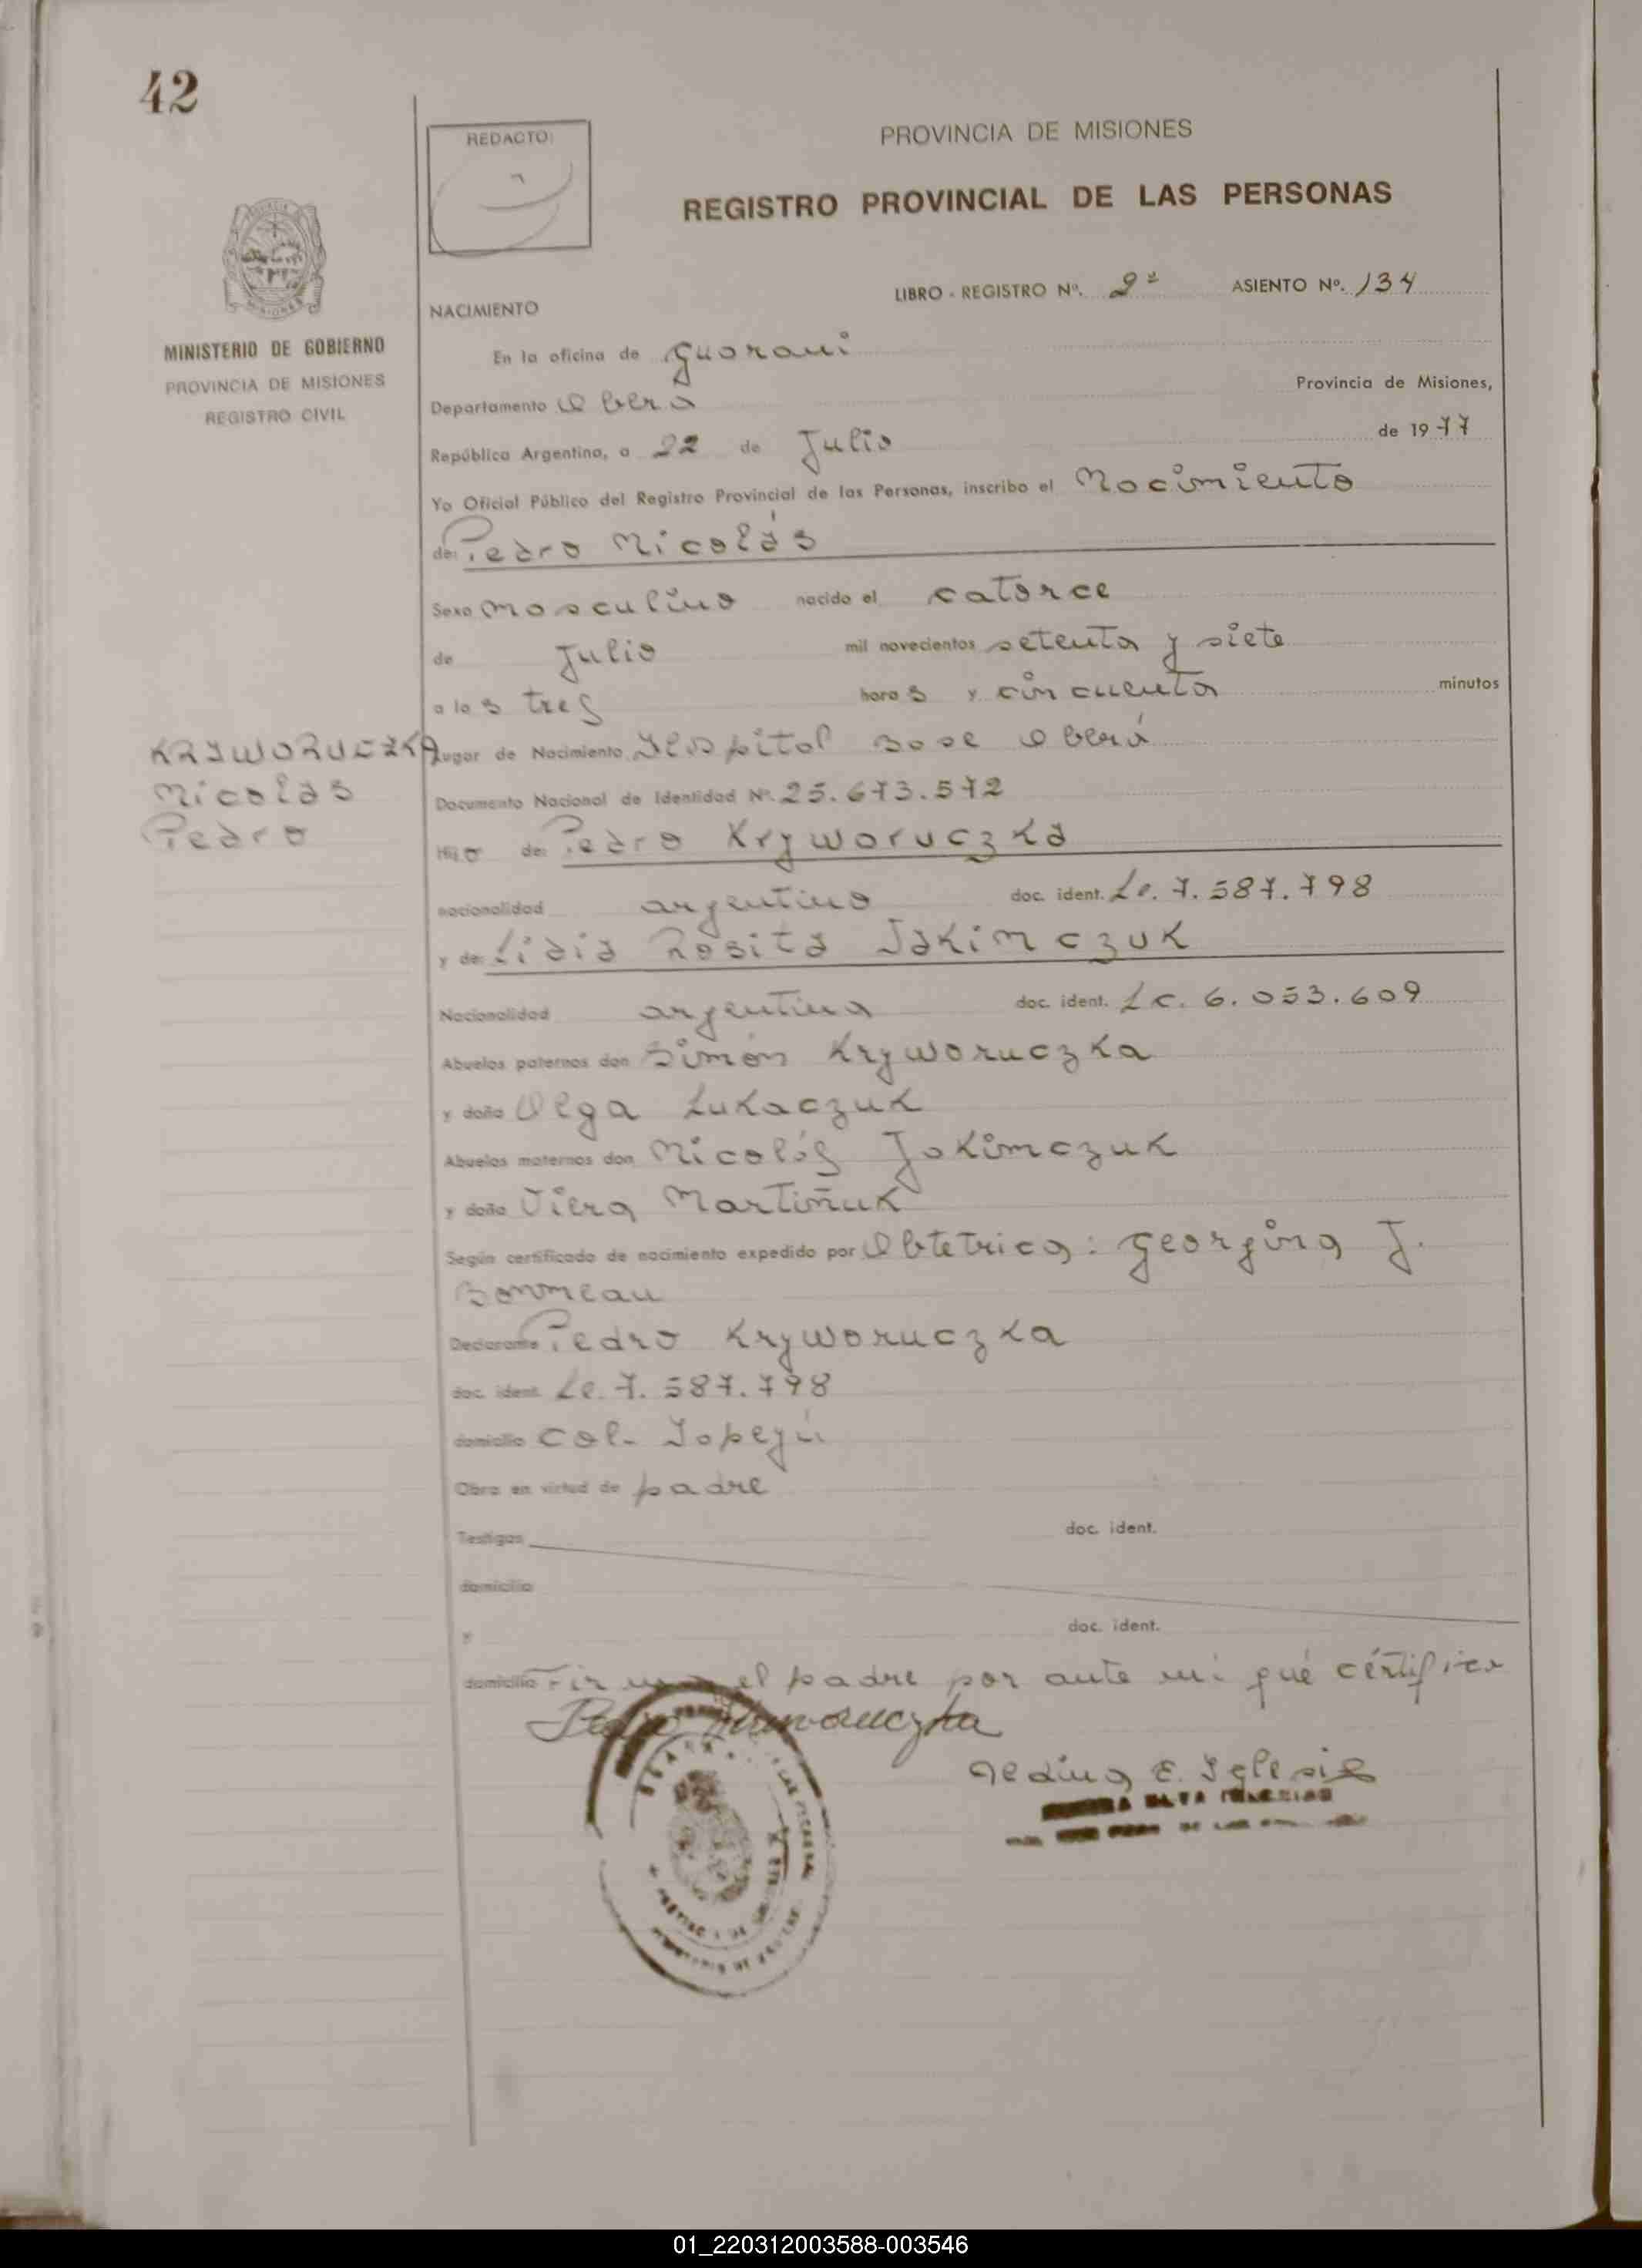 42
REDACTO:
PROVINCIA DE MISIONES
REGISTRO PROVINCIAL DE LAS PERSONAS
MINISTERIO DE GOBIERNO
PROVINCIA DE MISIONES
REGISTRO CIVIL
LIBRO - REGISTRO Nº. 2º ASIENTO Nº. 134
NACIMIENTO
En la oficina de Guarani
Departamento Obera Provincia de Misiones,
República Argentina, a 22 de Julio de 1977
Yo Oficial Público del Registro Provincial de las Personas, inscribo el Nacimiento
de: Pedro Nicolás
Sexo masculino nacido el catorce
de Julio mil novecientos setenta y siete
a las tres horas y cincuenta minutos
KRYWORUCZKA
Nicolás
Pedro
Lugar de Nacimiento Hospital Base Oberá
Documento Nacional de Identidad Nº. 25.673.572
Hijo de: Pedro Kryworuczka
nacionalidad argentino doc. ident. Le. 7.587.798
y de: Lidia Rosita Jakimczuk
Nacionalidad argentina doc. ident. Lc. 6.053.609
Abuelos paternos don Simón Kryworuczka
y doña Olga Lukaczuk
Abuelos maternos don Nicolás Jakimczuk
y doña Viera Martiñuk
Según certificado de nacimiento expedido por Obtetrica: Georgina J.
Bonneau
Declarante Pedro Kryworuczka
doc. ident. Le. 7.587.798
domicilio Col. Yapeyú
Obra en virtud de padre
Testigos doc. ident.
domicilio
y doc. ident.
domicilio Firma el padre por ante mi qué cértifico
Pedro Kryworuczka
E. Iglesias
01_220312003588-003546